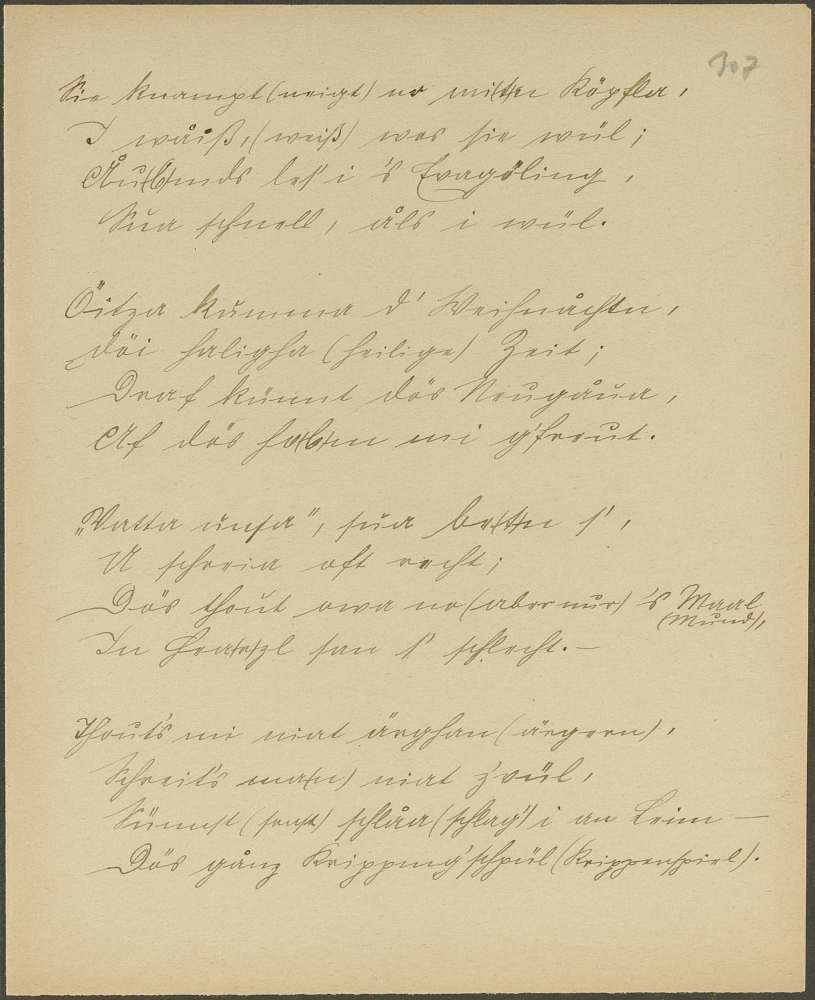 307
Sie knampt (neigt) no mi(t)'n Köpfla,
I wåiß, (weiß) wos sie wül;
Åu(b)mds les' i 's Evagöling,
Sua schnell, åls i wül.
Öitza kumma d' Weihnåchtn,
Döi haligha (heilige) Zeit;
Draf künnt dös Neugåua,
Af dös ho(b)m mi g'freut.
„Vatta unsa", sua bet(t)n s',
U schreia oft recht;
Dös thout owa no (aber nur) 's Maal
(Mund),
In Hea(r)zl san s' schlecht. —
Thout's mi niat ärghan (ärgern),
Schreit's ma(n) niat z'vül,
Sünnst (sonst) schlåa (schlag') i an Leim —
Dös gånz Kripping'schpül (Krippenspiel).